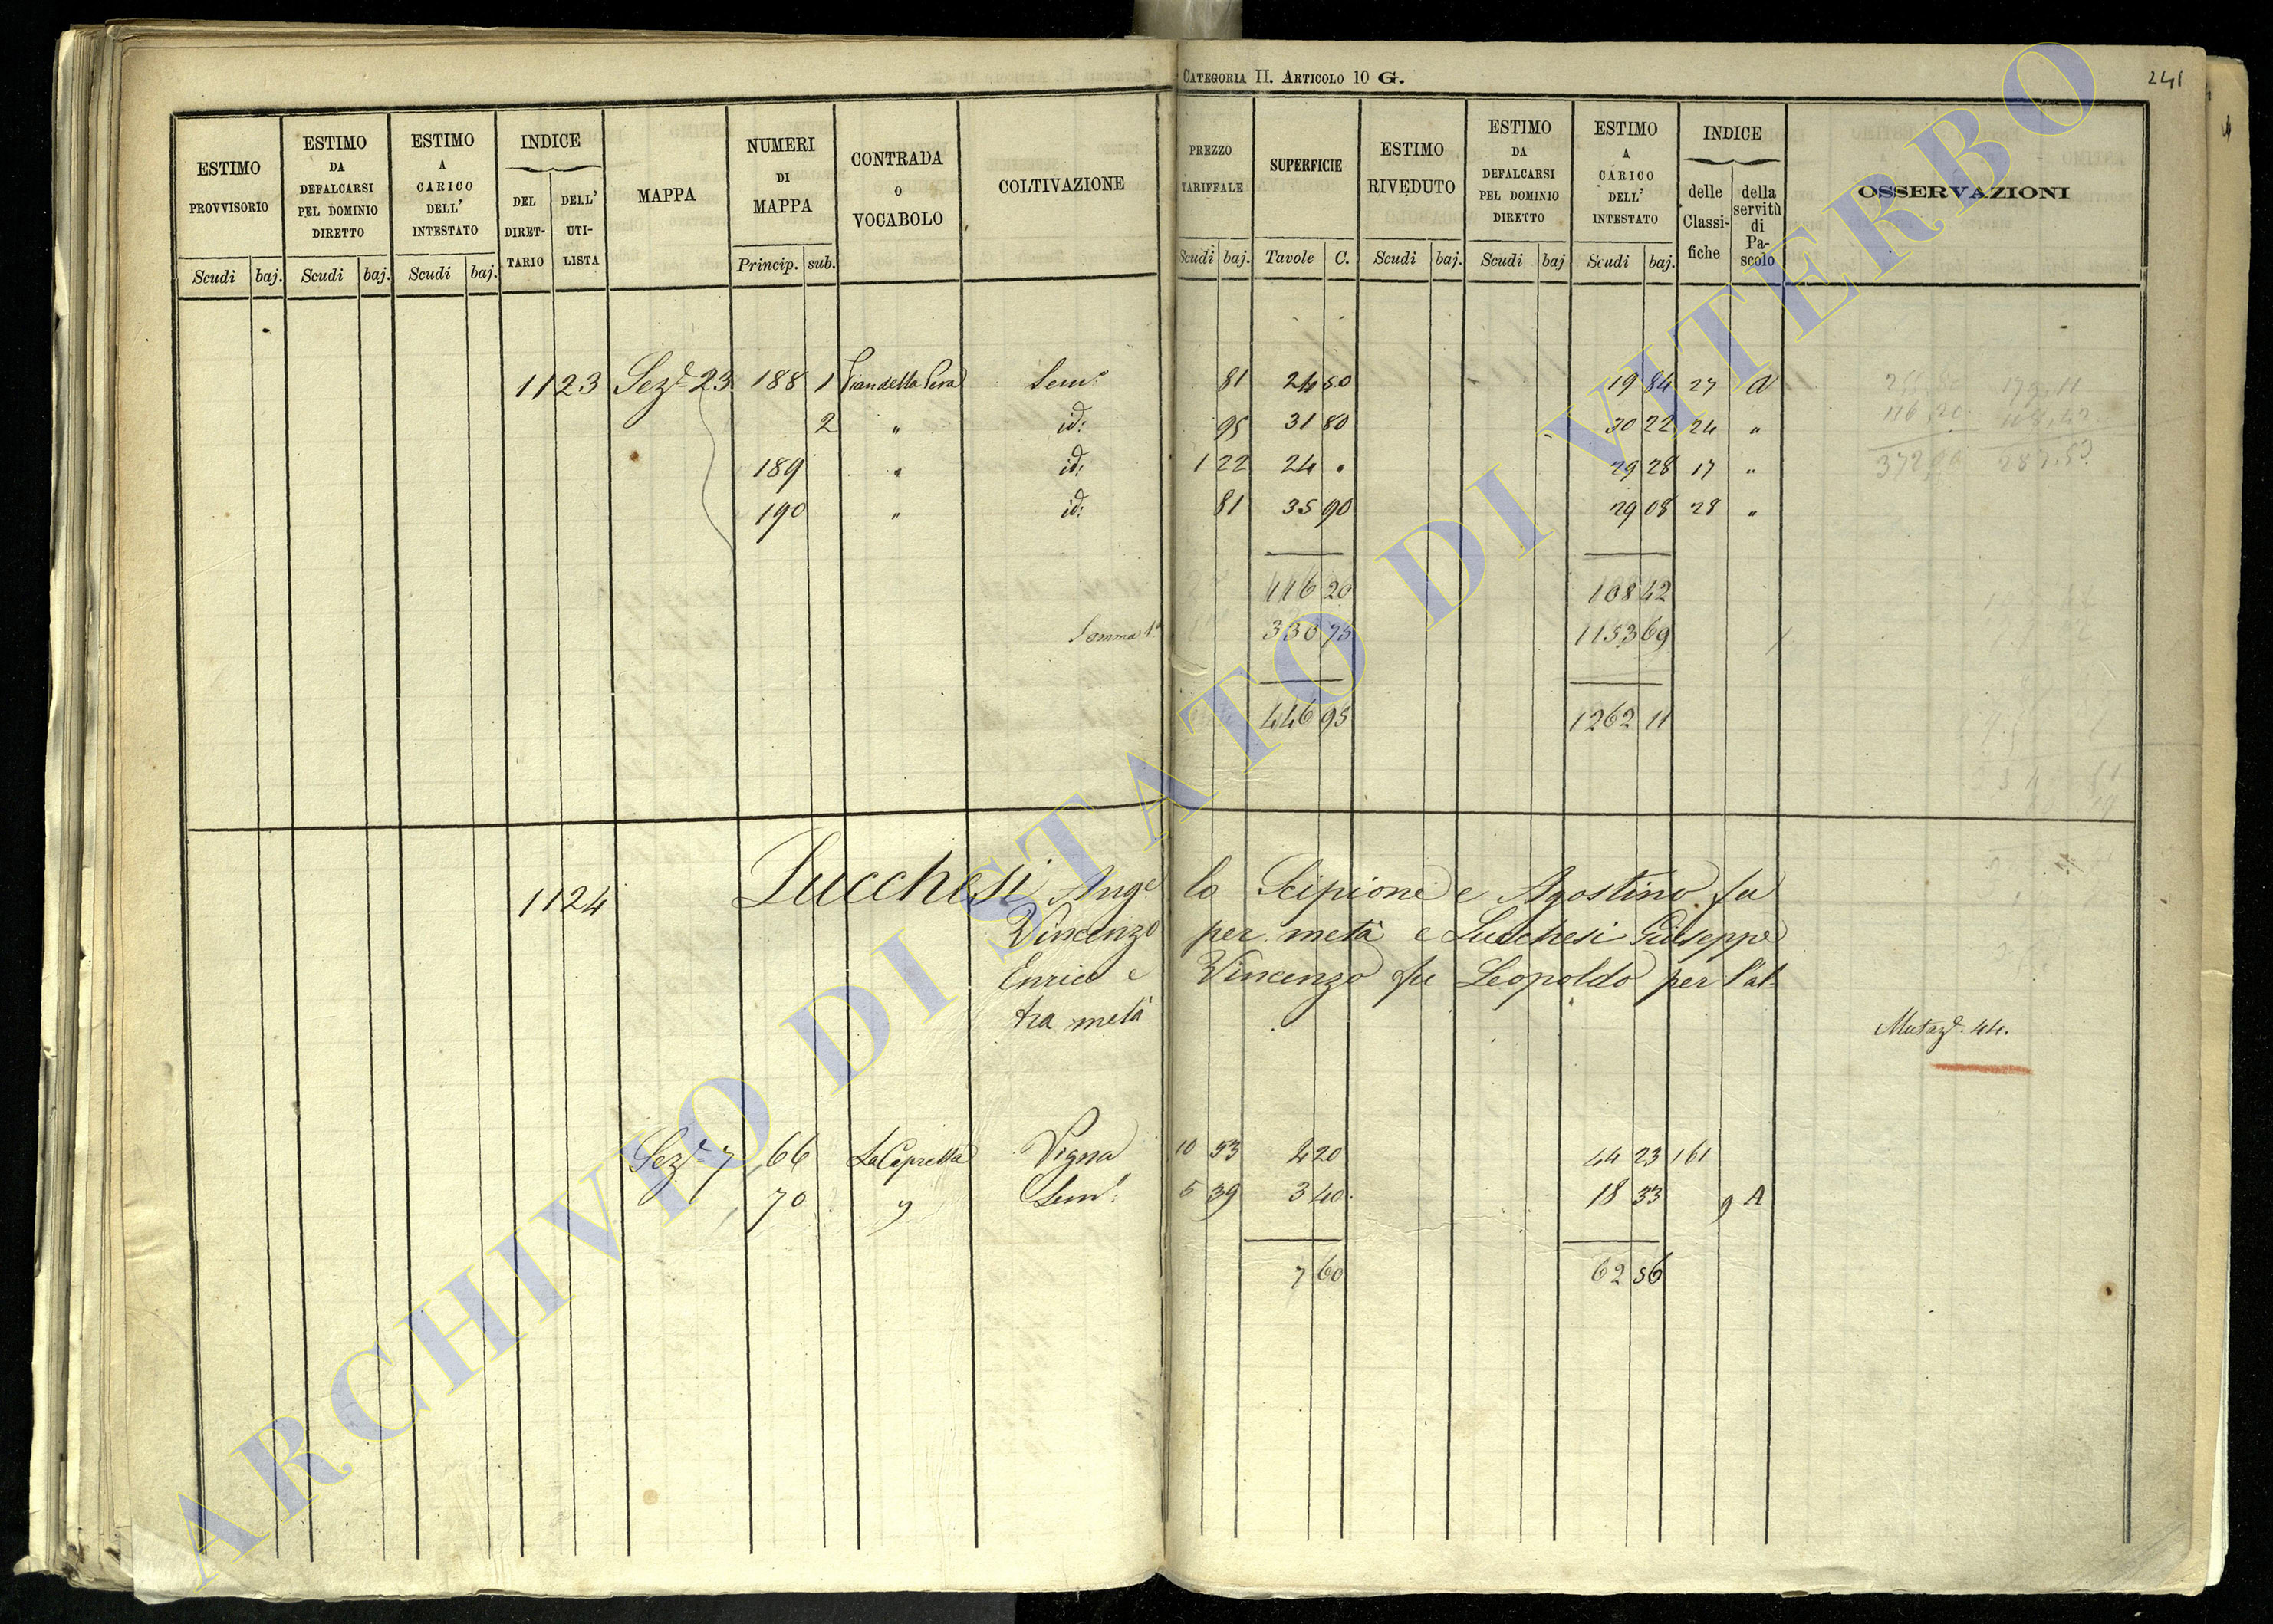 CATEGORIA II. ARTICOLO 10 G.
241
ESTIMO PROVVISORIO
Scudi baj.
ESTIMO DA DEFALCARSI PEL DOMINIO DIRETTO
Scudi baj.
ESTIMO A CARICO DELL' INTESTATO
Scudi baj.
INDICE
DEL DIRET-TARIO
DELL' UTI-LISTA
MAPPA
NUMERI DI MAPPA
Princip. sub.
CONTRADA O VOCABOLO
COLTIVAZIONE
PREZZO TARIFFALE
Scudi baj.
SUPERFICIE
Tavole C.
ESTIMO RIVEDUTO
Scudi baj.
ESTIMO DA DEFALCARSI PEL DOMINIO DIRETTO
Scudi baj
ESTIMO A CARICO DELL' INTESTATO
Scudi baj.
INDICE
delle Classi-fiche
della servitù di Pa-scolo
OSSERVAZIONI
1123 Sez.e 23 188 1 Pian della Pera Sem.o 81 24 50 19 84 27 A
2 " id: 95 31 80 30 22 24 "
189 " id: 1 22 24 " 29 28 17 "
190 " id: 81 35 90 29 08 28 "
116 20 108 42
Somma 1a 330 75 1153 69
446 95 1262 11
1124 Lucchesi Angelo Scipione e Agostino fu
Vincenzo per metà e Lucchesi Giuseppe
Enrico e Vincenzo fu Leopoldo per l'al-
tra metà
Mutaz.e 44.
Sez.e 7 66 La Capretta Vigna 10 53 4 20 44 23 161
70 " Sem.o 5 39 3 40 18 33 9 A
7 60 62 56
ARCHIVIO DI STATO DI VITERBO